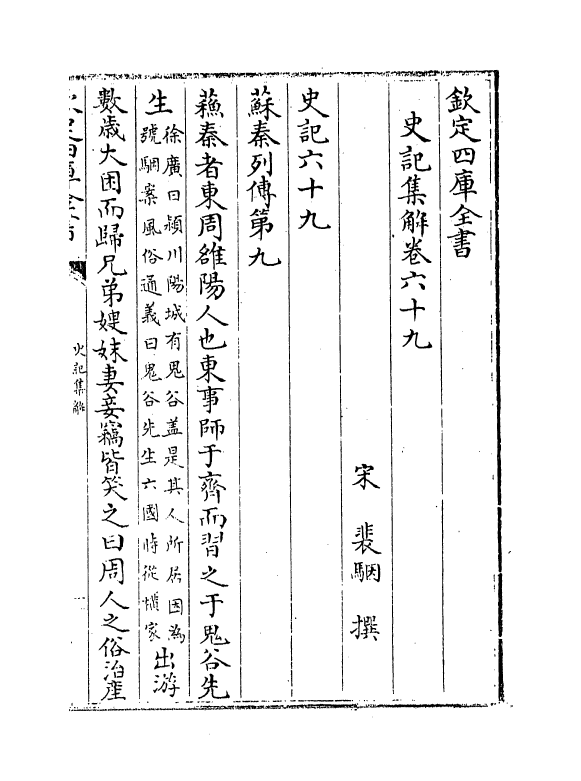 欽定四庫全書
史記集解卷六十九
宋 裴駰 撰
史記六十九
蘇秦列傳第九
蘓秦者東周雒陽人也東事師于齊而習之于鬼谷先
生徐廣曰潁川陽城有鬼谷盖是其人所居因為
號駰案風俗通義曰鬼谷先生六國時從横家出游
數歲大困而歸兄弟嫂妹妻妾竊皆笑之曰周人之俗治産
史記集解